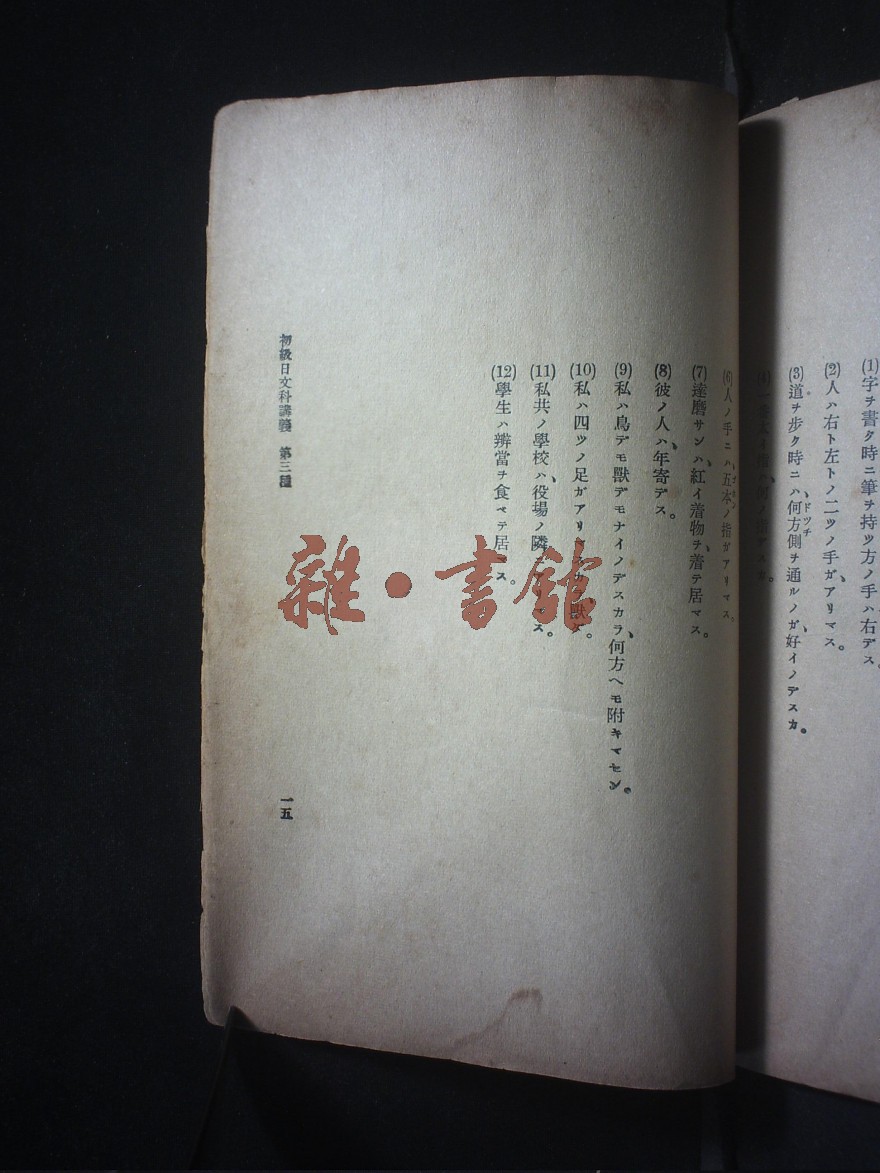 (1)字ヲ書ク時ニ筆ヲ持ツ方ノ手ハ右デス。
(2)人ハ右ト左トノ二ツノ手ガ、アリマス。
(3)道ヲ歩ク時ニハ、何方側ヲ通ルノガ、好イノデスカ。
ドツチ
(6)人ノ手ニハ、五本ノ指ガアリマス。
(7)達磨サンハ、紅イ着物ヲ、着テ居マス。
(8)彼ノ人ハ、年寄デス。
(9)私ハ鳥デモ獸デモナイノデスカラ、何方ヘモ附キマセン。
(10)私ハ四ツノ足ガアリマスカラ獸ダ。
(11)私共ノ學校ハ、役場ノ隣ニアリマス。
(12)學生ハ辨當ヲ食べテ居マス。
初級日文科講義 第三種
一五
雜·書館